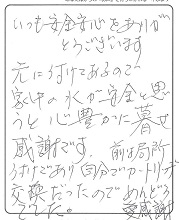 いつも安全安心をありが
とうございます
元に付けてあるので
家中の水が安全と思
うと心豊かに暮せ
感謝です. 前は局所
付けであり自分でカートリッジ
交換だったのでめんどう
でした。 大感謝